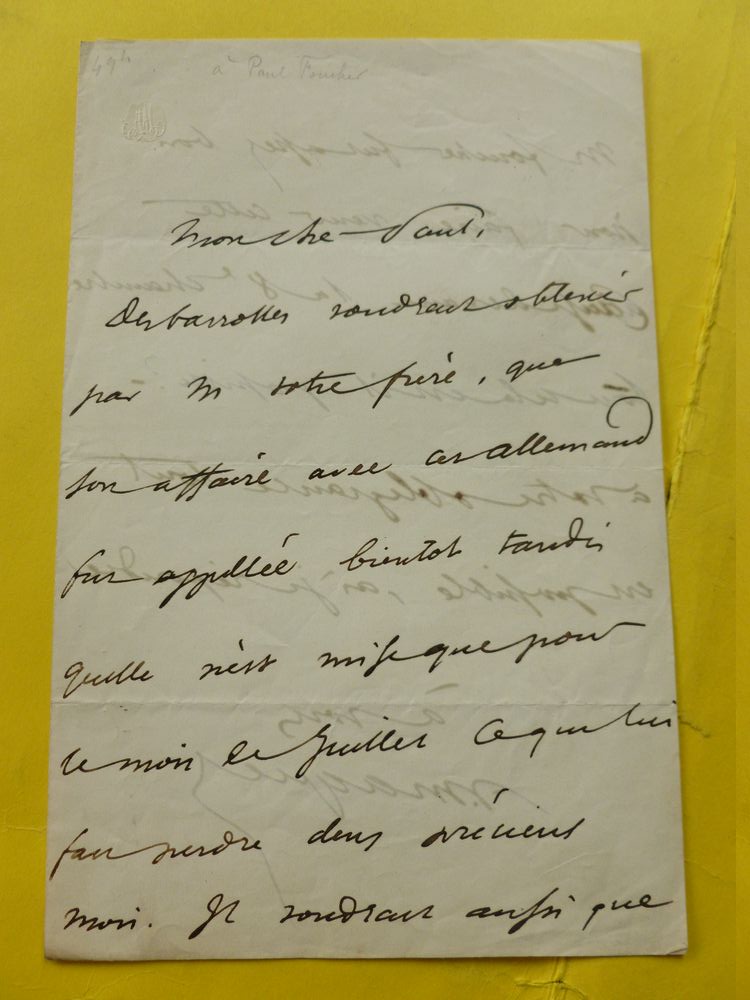 à Paul Foucher
Mon cher Paul,
Desbarrolles voudrait obtenir
par M votre frère, que
son affaire avec cet allemand
fut appellée bientot tandis
quelle n'est mise que pour
le mois de Juillet ce qui lui
fait perdre deux précieux
mois. Il voudrait aussi que